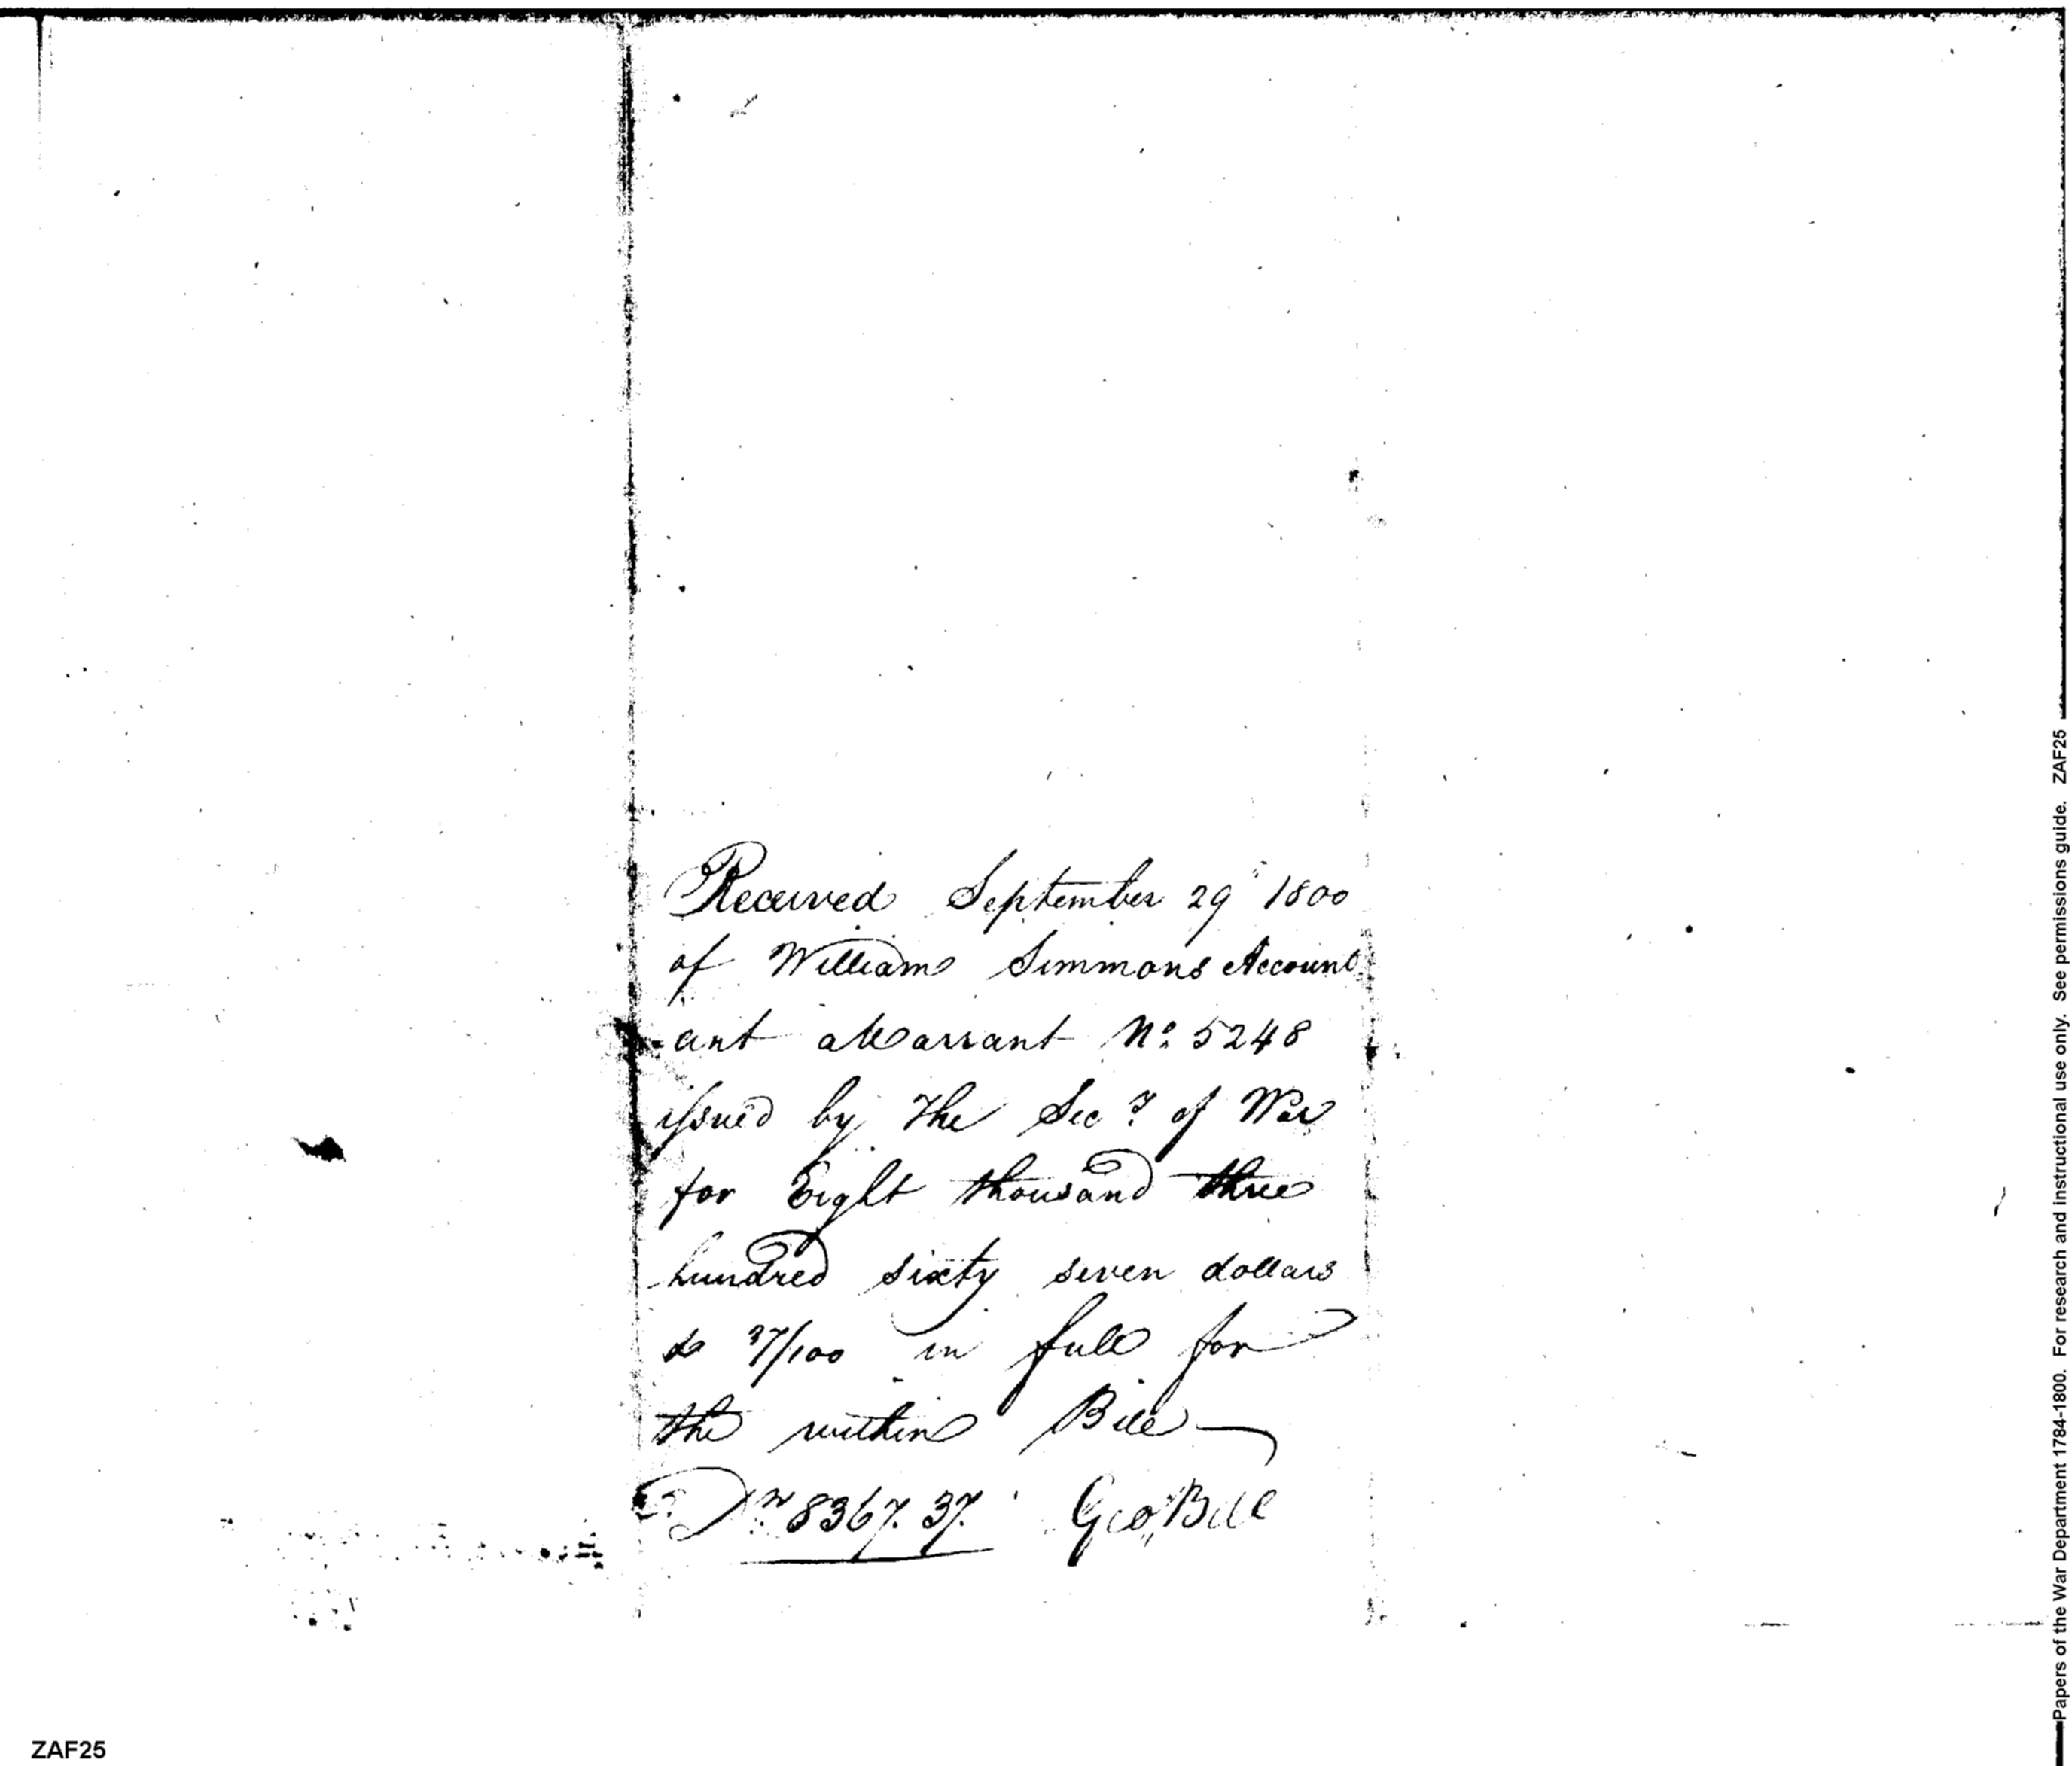 Received September 29th 1800
of William Simmons Account
ant a Warrant No. 5248
issued by the Secy. of War
for Eight thousand three
hundred sixty seven dollars
& 37/100 in full for
the within Bill
Drs. 8367.37. Geo. Bill
ZAF25
Papers of the War Department 1784-1800. For research and instructional use only. See permissions guide. ZAF25